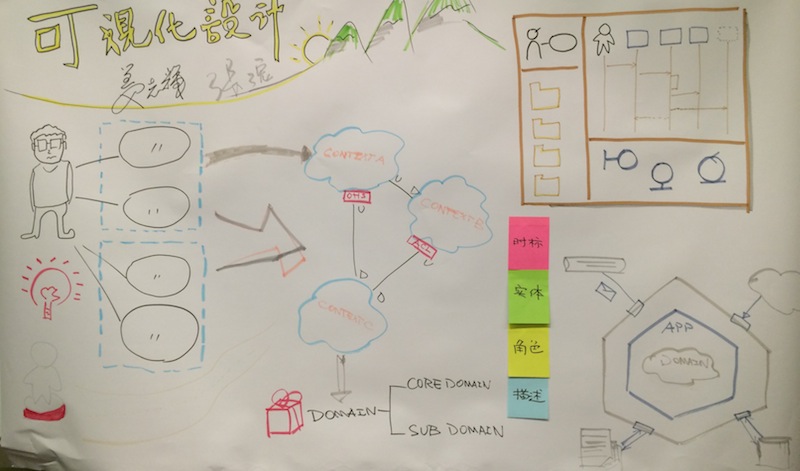 可視化設计
姜志辉 张逸
CONTEXT A
U
D
OHS
U
CONTEXT B
ACL
U
D
D
CONTEXT C
DOMAIN
CORE DOMAIN
SUB DOMAIN
时标
实体
角色
描述
APP
DOMAIN